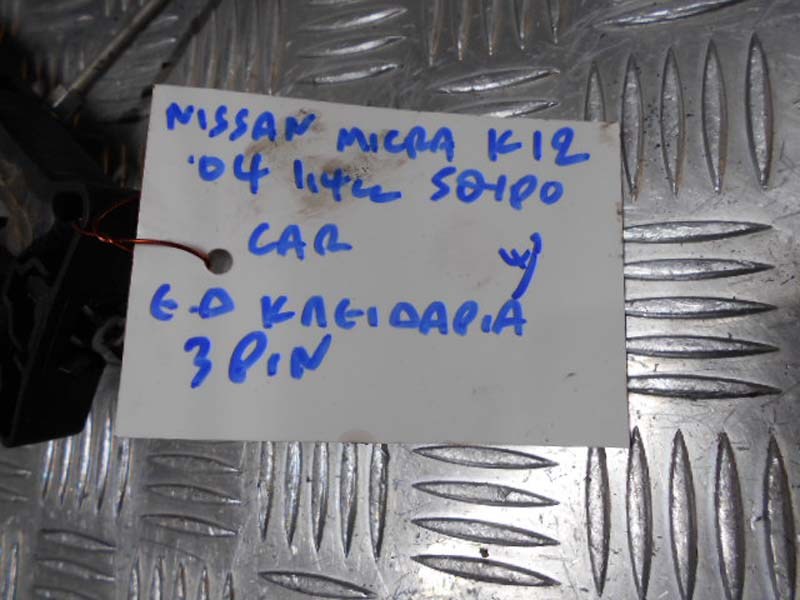 NISSAN MICRA K12
'04 1,4cc 5ΘΥΡΟ
CAR
Ε.Δ ΚΛΕΙΔΑΡΙΑ
3 PIN